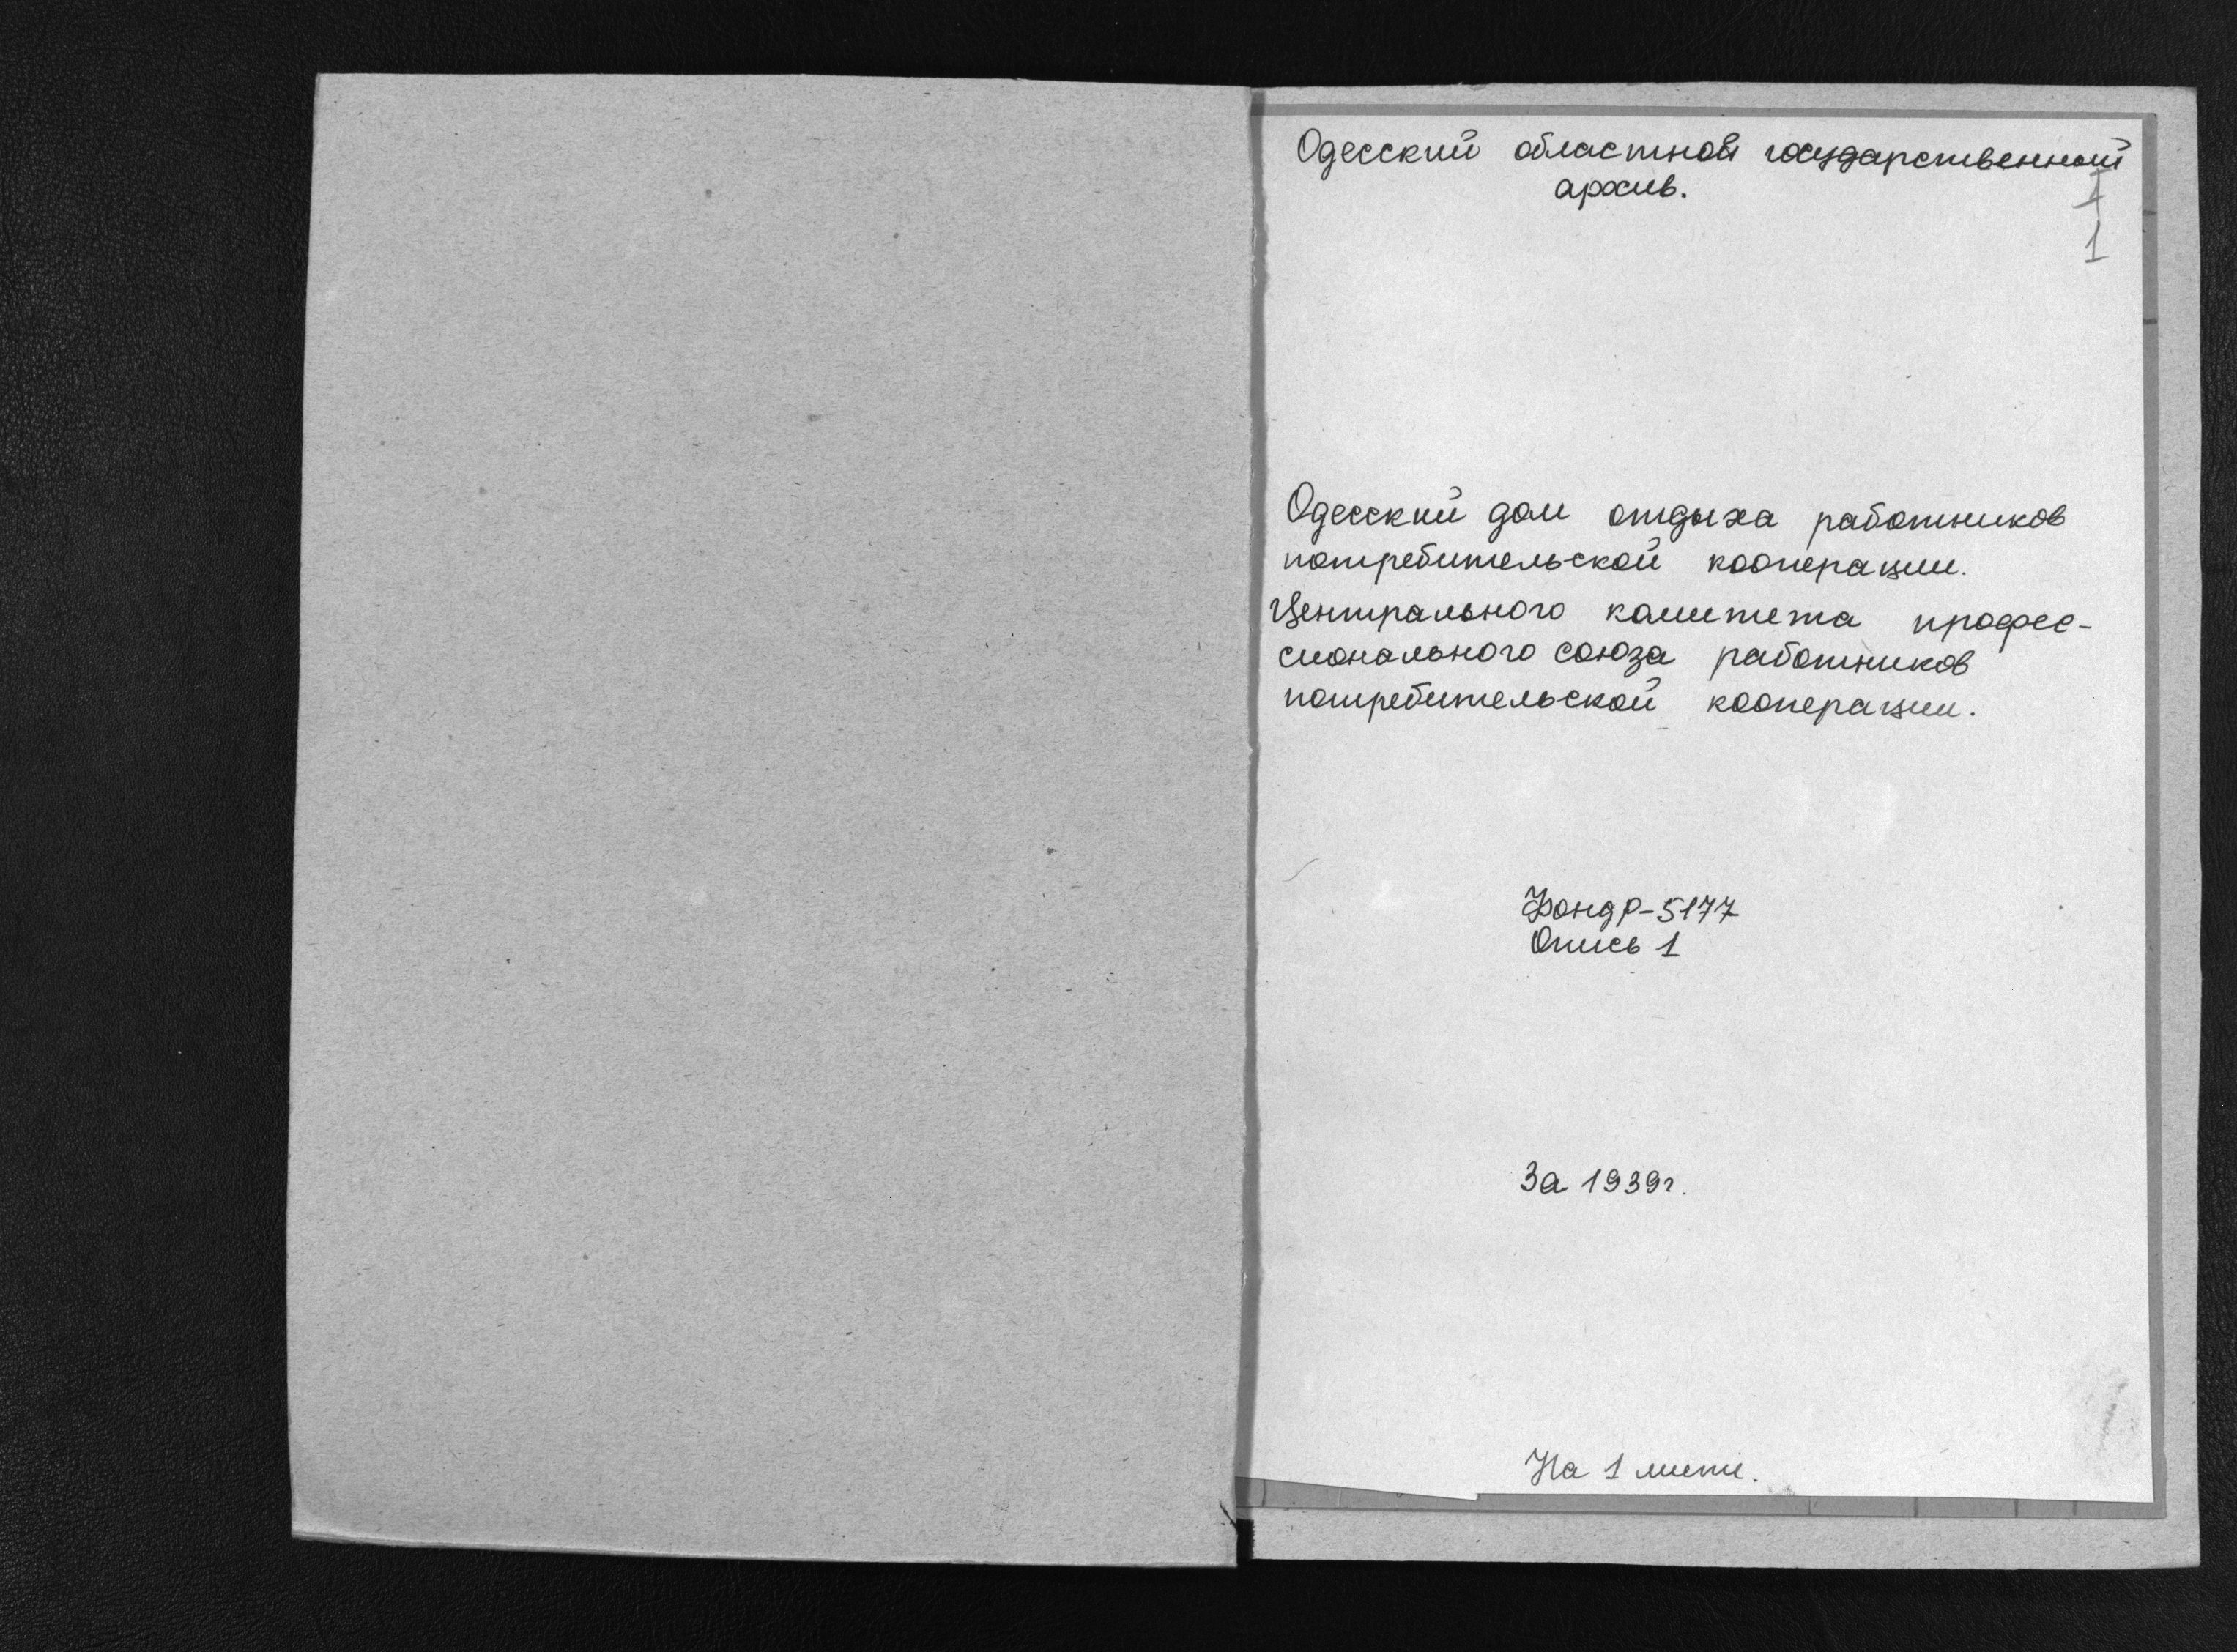 Одесский областной государственный
архив.
1
1
Одесский дом отдыха работников
потребительской кооперации.
Центрального комитета профес-
сионального союза работников
потребительской кооперации.
Фонд Р-5177
Опись 1
За 1939г.
На 1 листе.